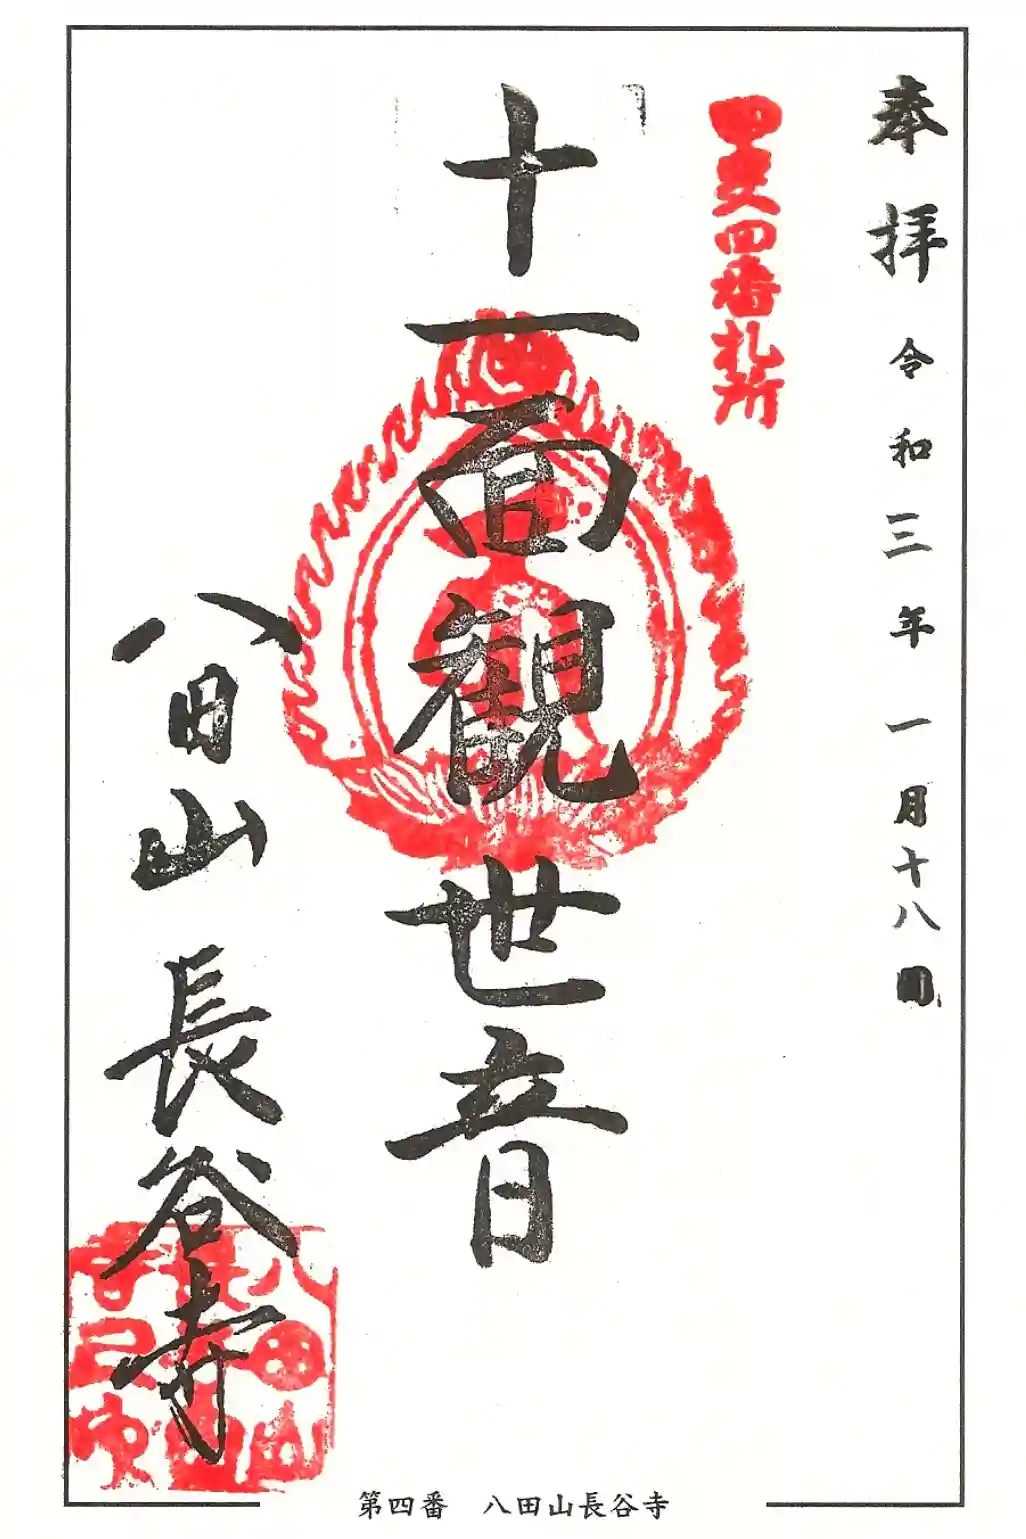 奉拝 令和三年一月十八日
甲斐四番札所
十一面観世音
八田山 長谷寺
第四番 八田山長谷寺